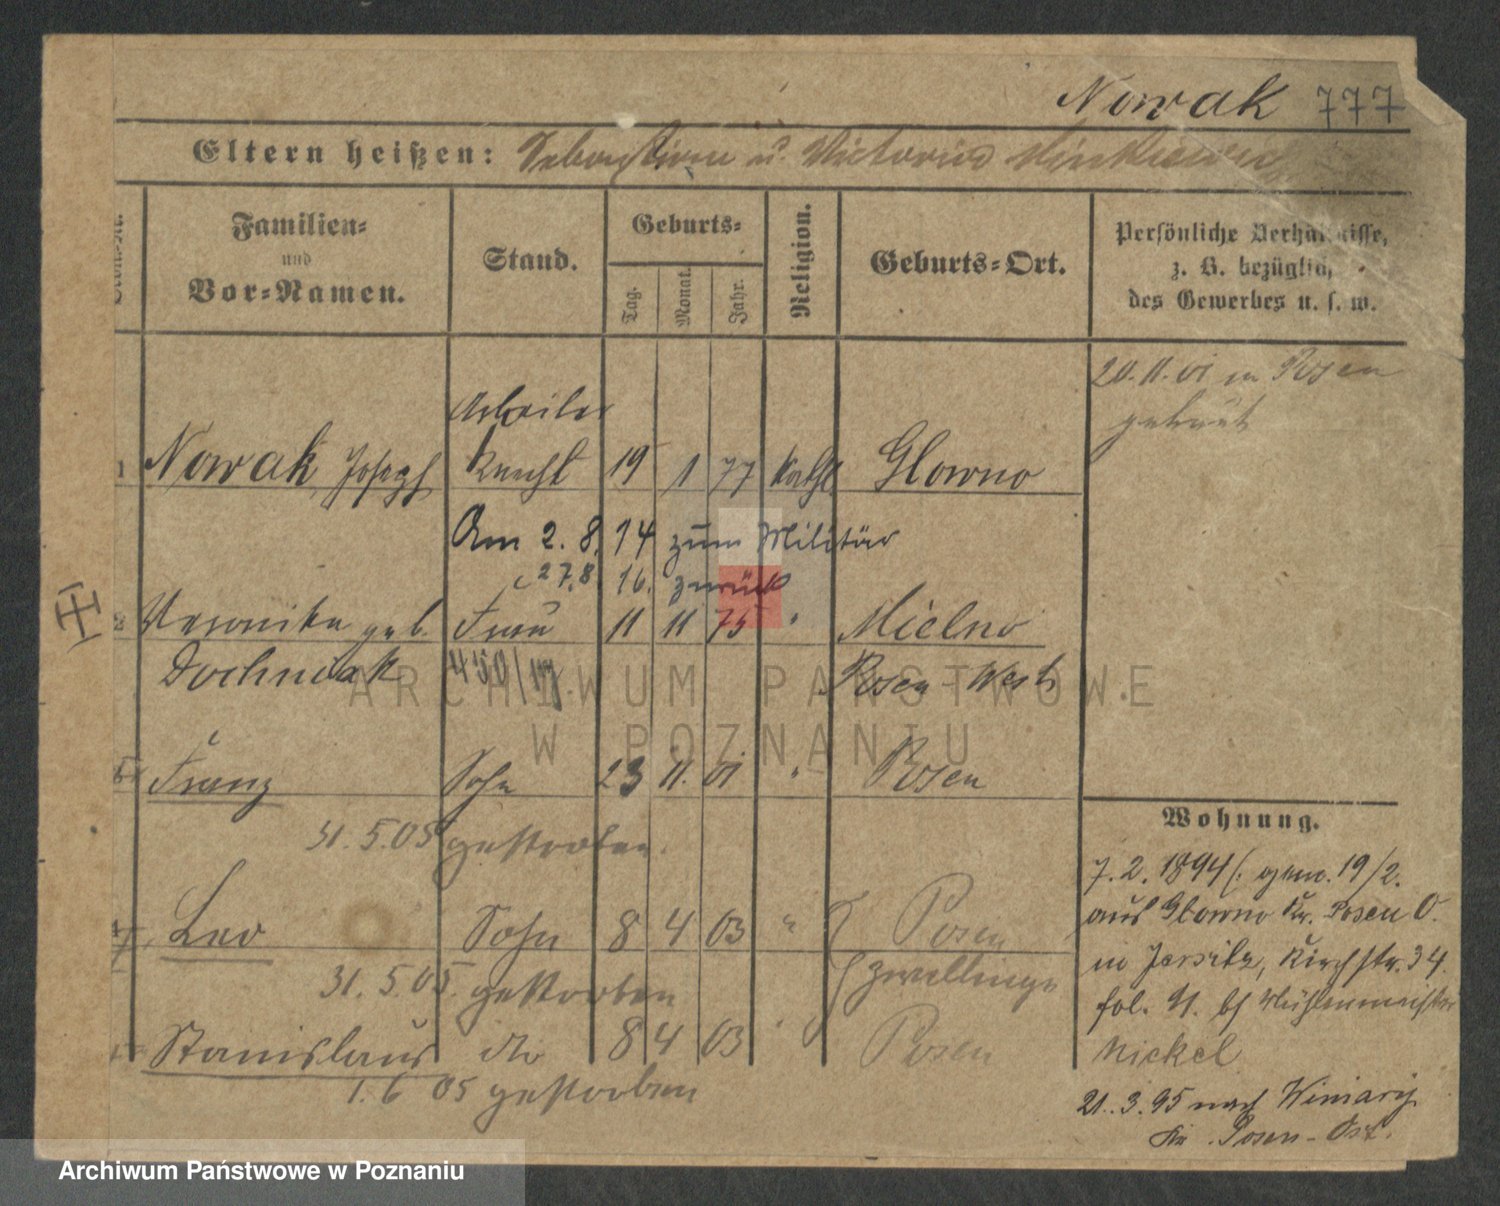 Nowak 777
Eltern heißen: Sebastian u. Victoria
Familien-
und
Vor-Namen.
Stand.
Geburts-
Tag.
Monat.
Jahr.
Religion.
Geburts-Ort.
Persönliche Verhältnisse,
z. B. bezüglich
des Gewerbes u. s. w.
20.11.01 in Posen
getraut
Arbeiter
1 Nowak, Joseph Knecht 19 1 77 Kath. Glowno
Am 2. 8. 14 zum Militär
27.8. 16. zurück
2 Veronika geb. Frau 11 11 75 " Mielno
Dochniak Posen-West
Franz Sohn 23 11. 01 " Posen
31.5.05 gestorben.
Leo Sohn 8 4 03 " Posen
31.5.05. gestorben Zwillinge
Stanislaus do 8 4 03 " Posen
1.6 05 gestorben
Wohnung.
7.2.1894 (. gem. 19/2.
aus Glowno Kr. Posen O.
in Jersitz, Kirchstr. 34.
fol. 91. bf Mühlenmeister
Nickel
21.3.95 nach Winiary
Kr. Posen-Ost.
ARCHIWUM PAŃSTWOWE
W POZNANIU
Archiwum Państwowe w Poznaniu